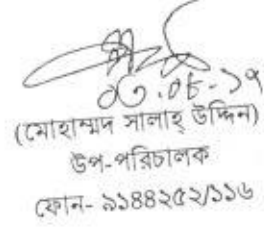 ০৩.০৮-১৭
(মোহাম্মদ সালাহ্ উদ্দিন)
উপ-পরিচালক
ফোন- ৯১৪৪২৫২/১১৬